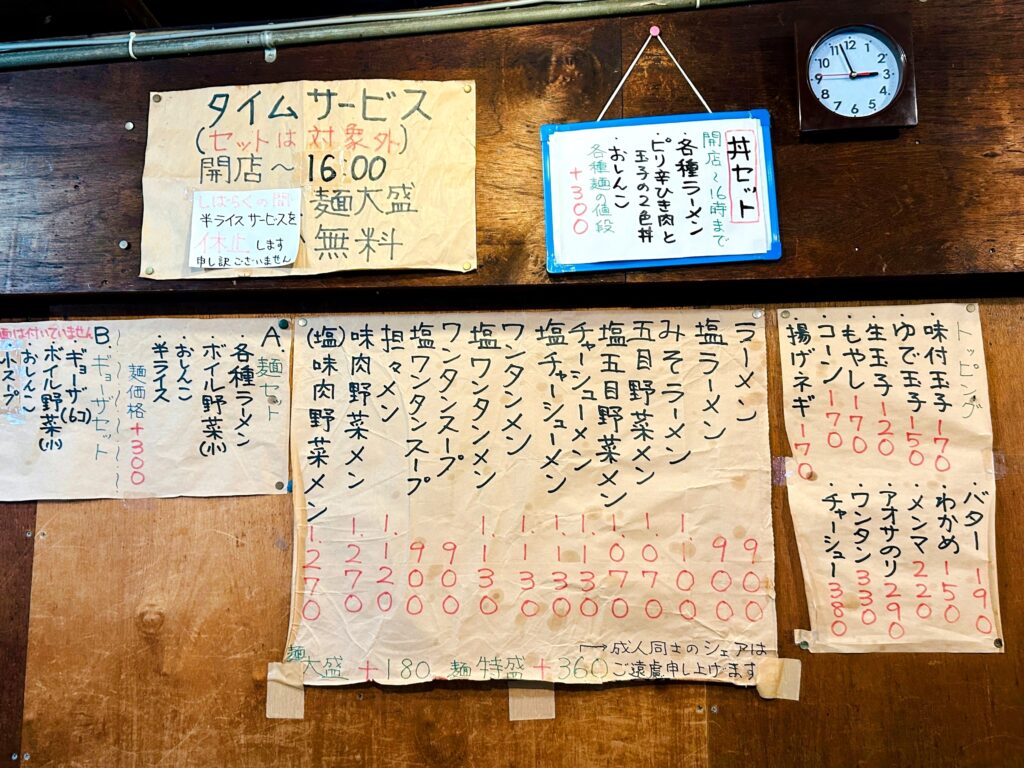 タイムサービス
(セットは対象外)
開店～16:00
麺大盛
無料
しばらくの間
半ライスサービスを
休止します
申し訳ございません
丼セット
開店～16時まで
・各種ラーメン
・ピリ辛ひき肉と
玉子の2色丼
・おしんこ
各種麺の値段
+300
12
1
2
3
4
5
6
7
8
9
10
11
A.麺セット
・各種ラーメン
・ボイル野菜(小)
・おしんこ
・半ライス
麺価格+300
B.ギョーザセット
麺は付いていません
・ギョーザ(6コ)
・ボイル野菜(小)
・おしんこ
・小スープ
ラーメン 900
塩ラーメン 900
みそラーメン 1.100
五目野菜メン 1.070
塩五目野菜メン 1.070
チャーシューメン 1.130
塩チャーシューメン 1.130
ワンタンメン 1.130
塩ワンタンメン 1.130
ワンタンスープ 900
塩ワンタンスープ 900
担々メン 1.120
味肉野菜メン 1.270
(塩)味肉野菜メン 1.270
麺大盛+180 麺特盛+360
→成人同士のシェアは
ご遠慮申し上げます
トッピング
味付玉子170
ゆで玉子150
生玉子120
もやし170
コーン170
揚げネギ170
・バター190
・わかめ150
・メンマ220
・アオサのり290
・ワンタン330
・チャーシュー380